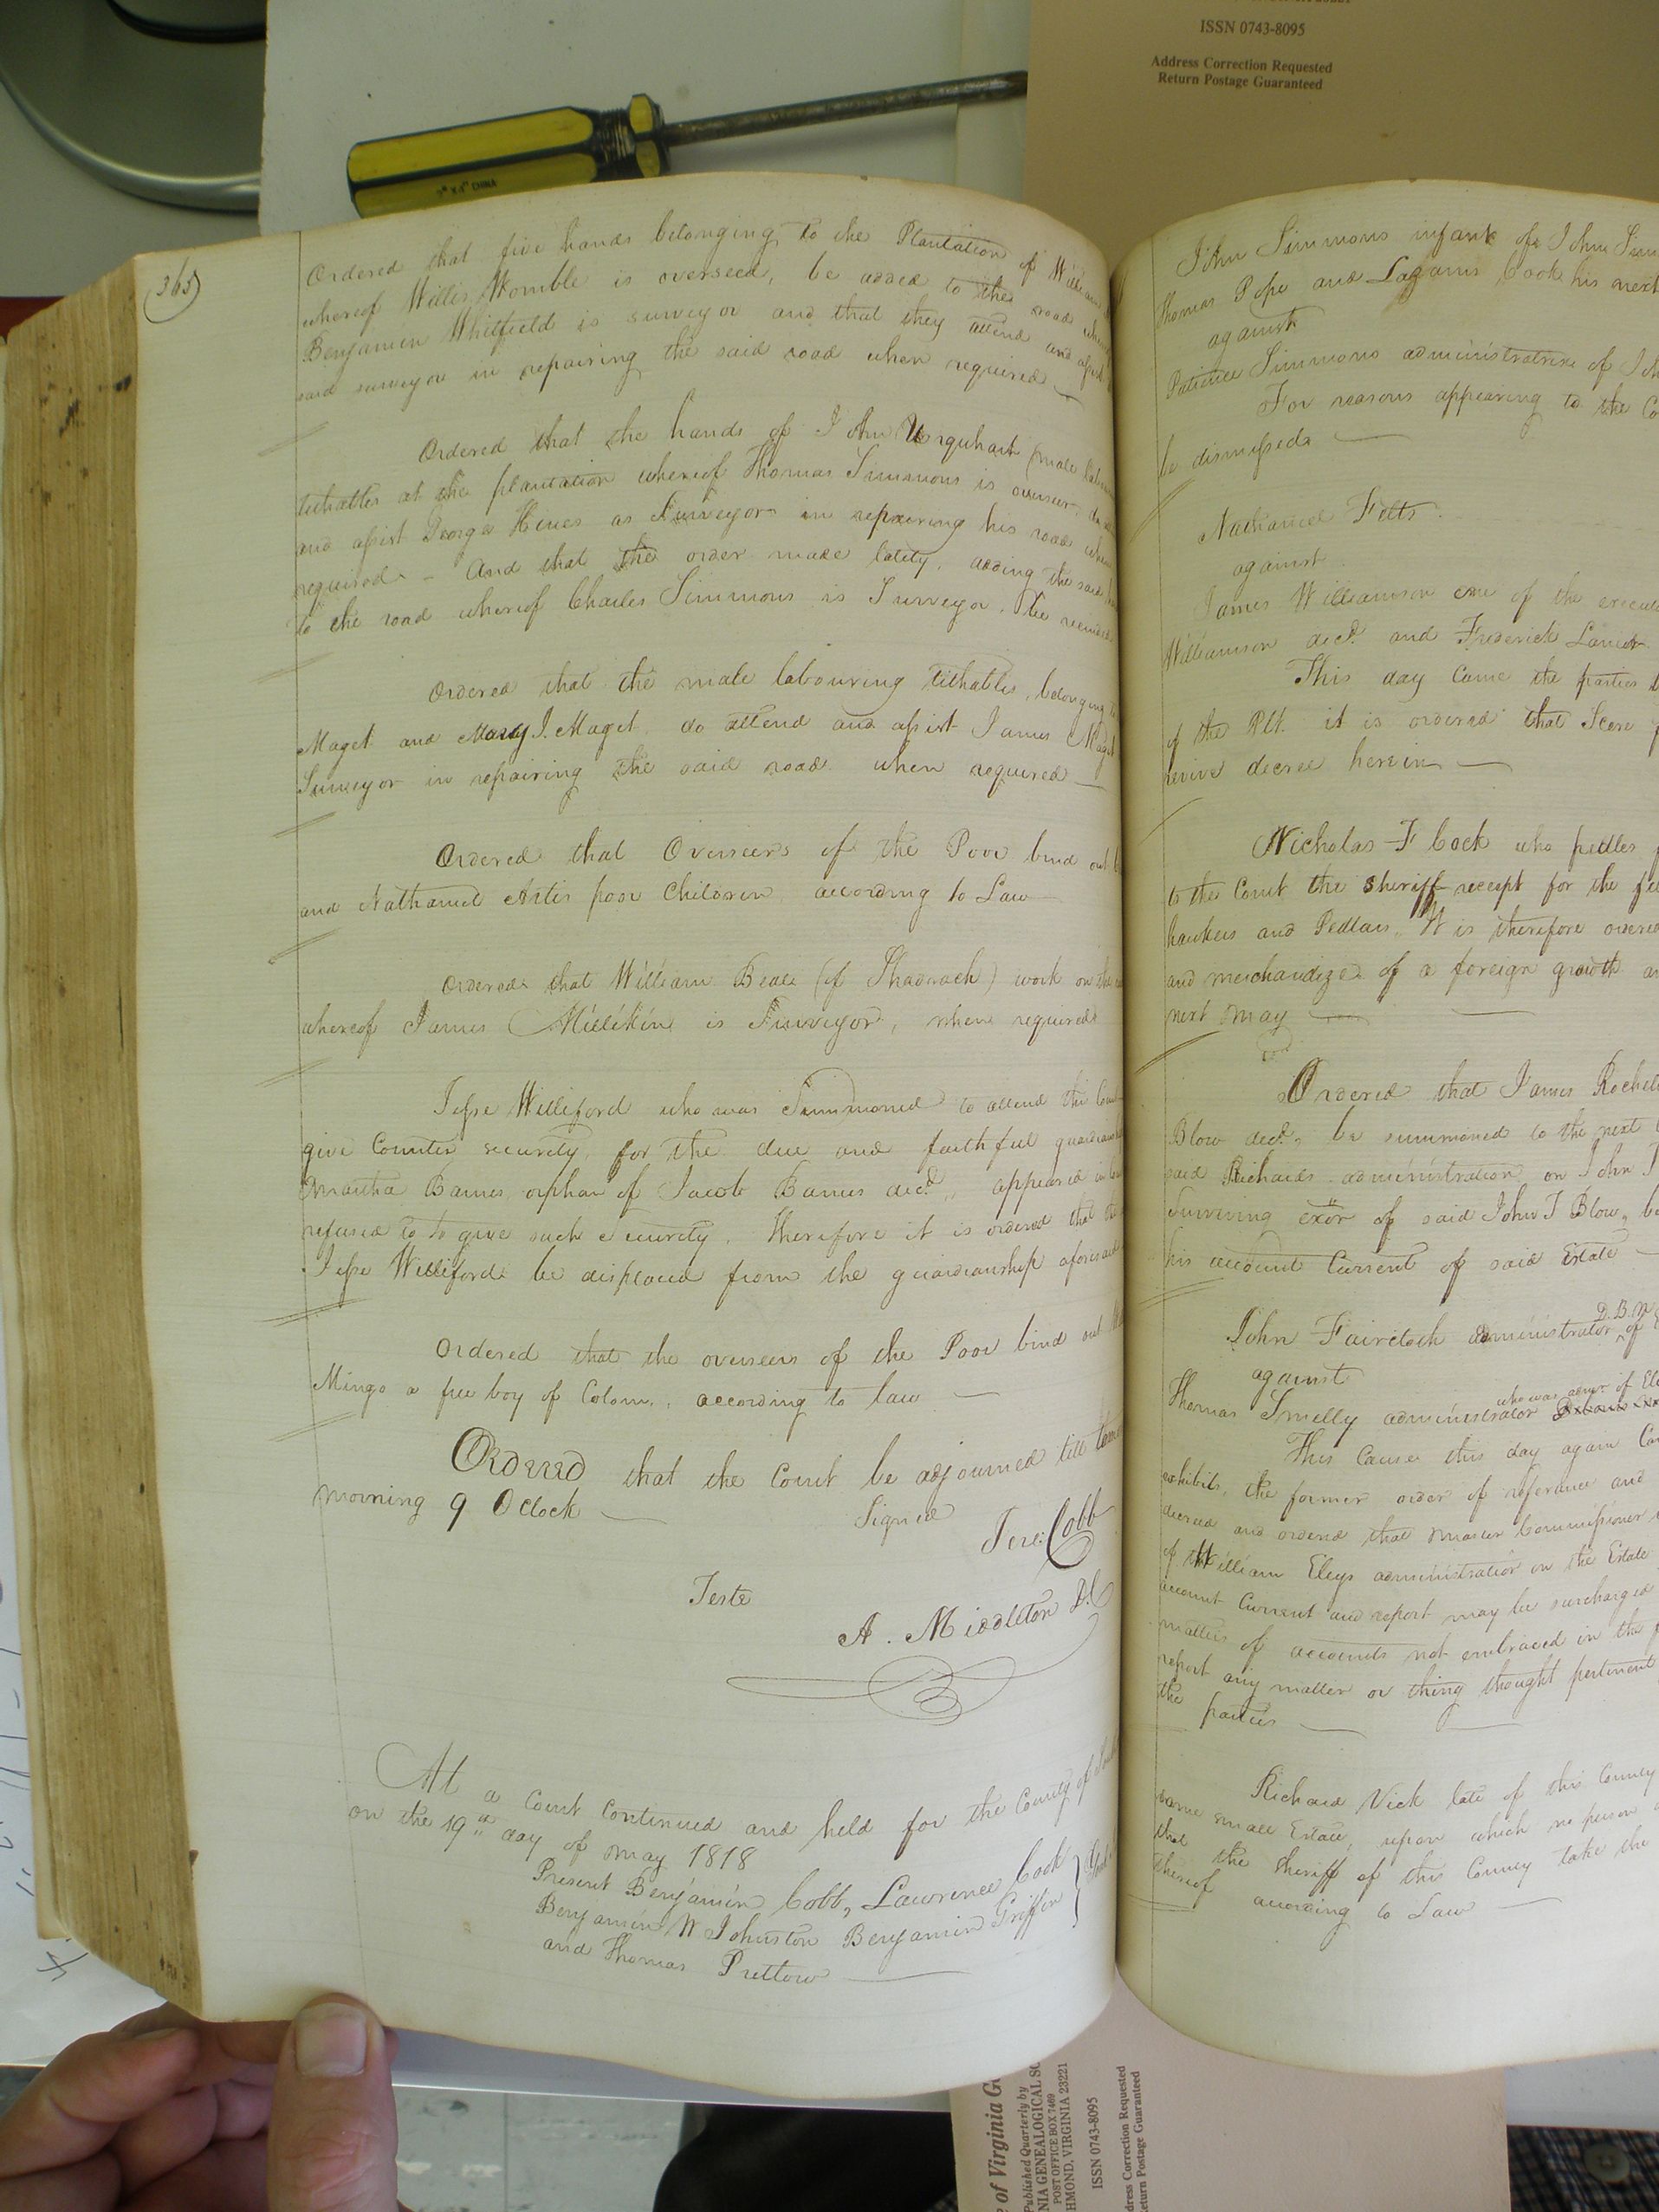 ISSN 0743-8095
Address Correction Requested
Return Postage Guaranteed
CHINA
(365)
Ordered that five hands belonging to the Plantation of William
whereof Willis Womble is overseed, be added to the road
Benjamin Whitfield is surveyor and that they attend and assist
said surveyor in repairing the said road when required
Ordered that the hands of John Urquhart (male
tithables at the plantation whereof Thomas Simmons is overseer
and assist George Hines as Surveyor in repairing his road when
required - And that the order made lately, adding the said
to the road whereof Charles Simmons is Surveyor, be
Ordered that the male labouring tithables, belonging
Maget and Mary J. Maget, do attend and assist James Maget
Surveyor in repairing the said road when required
Ordered that Overseers of the Poor bind out
and Nathaniel Artis poor Children according to Law
Ordered that William Beale (of Shadrach) work on the
whereof James Millikin is Surveyor, when required
Jesse Williford who was Summoned to attend this
give Counter security, for the due and faithful
Martha Barnes orphan of Jacob Barnes decd., appeared
refused to to give such security. Therefore it is ordered that the
Jesse Williford be displaced from the guardianship aforesaid
Ordered that the overseers of the Poor bind out
Mingo a free boy of Colour, according to law
Ordered that the Court be adjourned till
morning 9 OClock
Signed
Jere: Cobb
Teste
A. Middleton
At a Court Continued and held for the County of
on the 19th day of May 1818
Present Benjamin Cobb, Lawrence Cook
Benjamin W Johnston Benjamin Griffin
and Thomas Pretlow
John Simmons infant of John
Thomas Pope and Lazarus Cook his next
against
Patience Simmons administratrix of
For reasons appearing to the
be dismissed
Nathaniel Felts
against
James Williamson one of the
Williamson decd. and Frederick Lanier
This day Came the parties
of the Plt. it is ordered that Scere
revive decree herein
Nicholas F Cock who pedles
to the Court the Sheriff receipt for the
hawkers and Pedlars, It is therefore
and merchandize of a foreign growth
next May
Ordered that James
Blow decd., be summoned to the next
said Richards administration on John
Surviving exor of said John T Blow,
his account Current of said Estate
D.B.N
John Faircloth administrator of
against
who was admr. of
Thomas Smelly administrator
This Cause this day again
exhibits, the former order of reference and
decreed and ordered that Master Commissioner
of William Eleys administration on the Estate
account Current and report may be surcharged
matters of accounts not embraced in the
report any matter or thing thought pertinent
the parties
Richard Vick late of this County
some small Estate, upon which no person
that the Sheriff of this County take the
thereof according to Law
of Virginia
Published Quarterly by
POST OFFICE BOX 7469
RICHMOND, VIRGINIA 23221
ISSN 0743-8095
Address Correction Requested
Return Postage Guaranteed